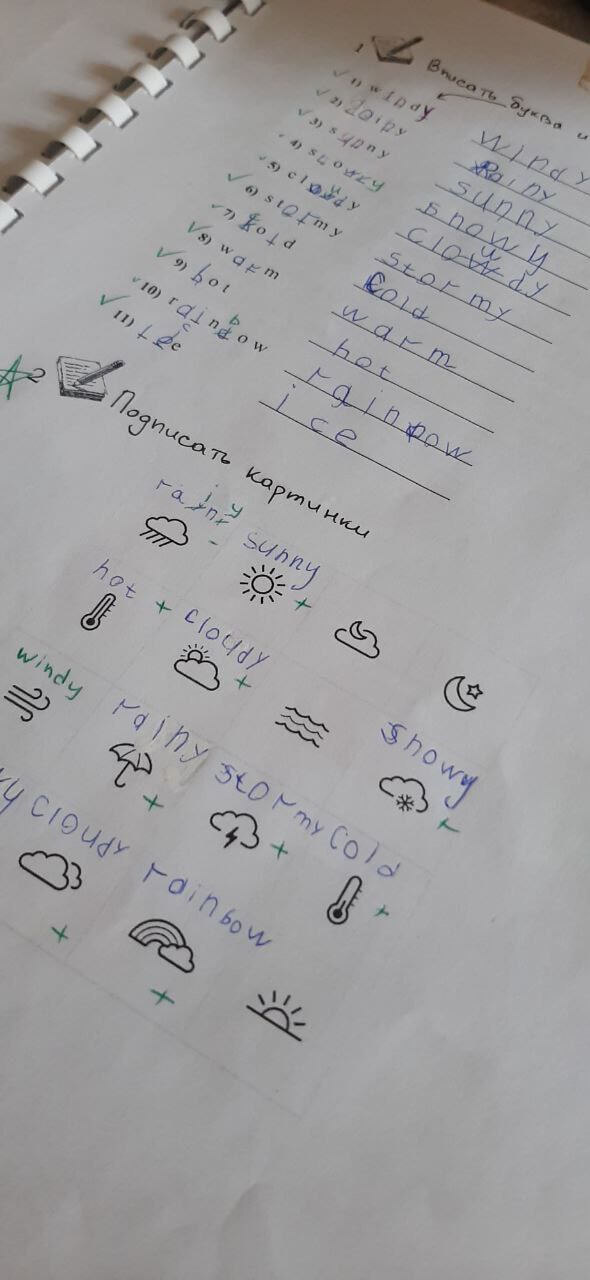 1 Вписать буква и
1) windy windy
2) rainy Rainy
3) sunny sunny
4) snowy
5) cloudy cloudy
6) stormy stormy
7) cold Cold
8) warm warm
9) hot hot
10) rainbow rainbow
11) ice ice
2 Подписать картинки
rainy sunny
hot cloudy
windy rainy stormy cold
snowy
cloudy rainbow